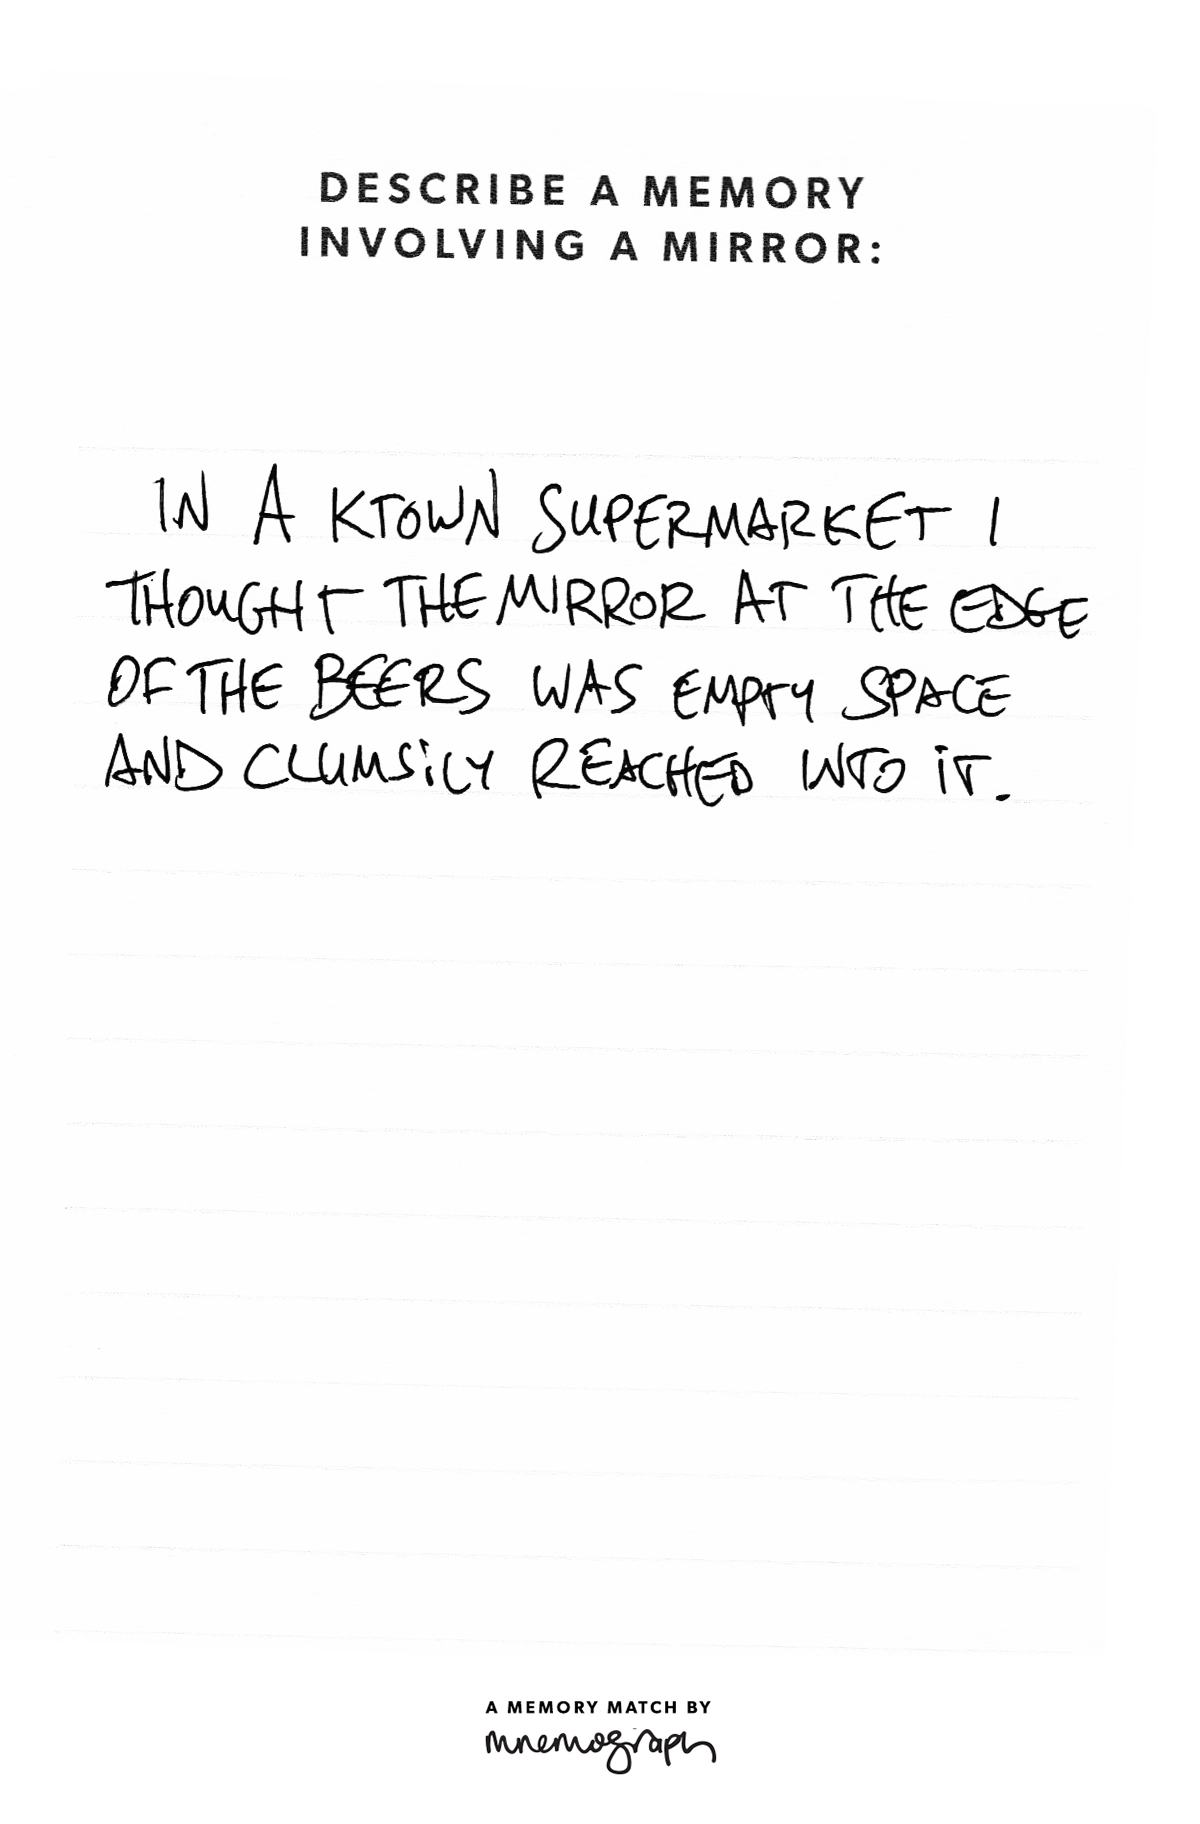 DESCRIBE A MEMORY
INVOLVING A MIRROR:
IN A KTOWN SUPERMARKET I
THOUGHT THE MIRROR AT THE EDGE
OF THE BEERS WAS EMPTY SPACE
AND CLUMSiLY REACHED INTO iT.
A MEMORY MATCH BY
mnemograph